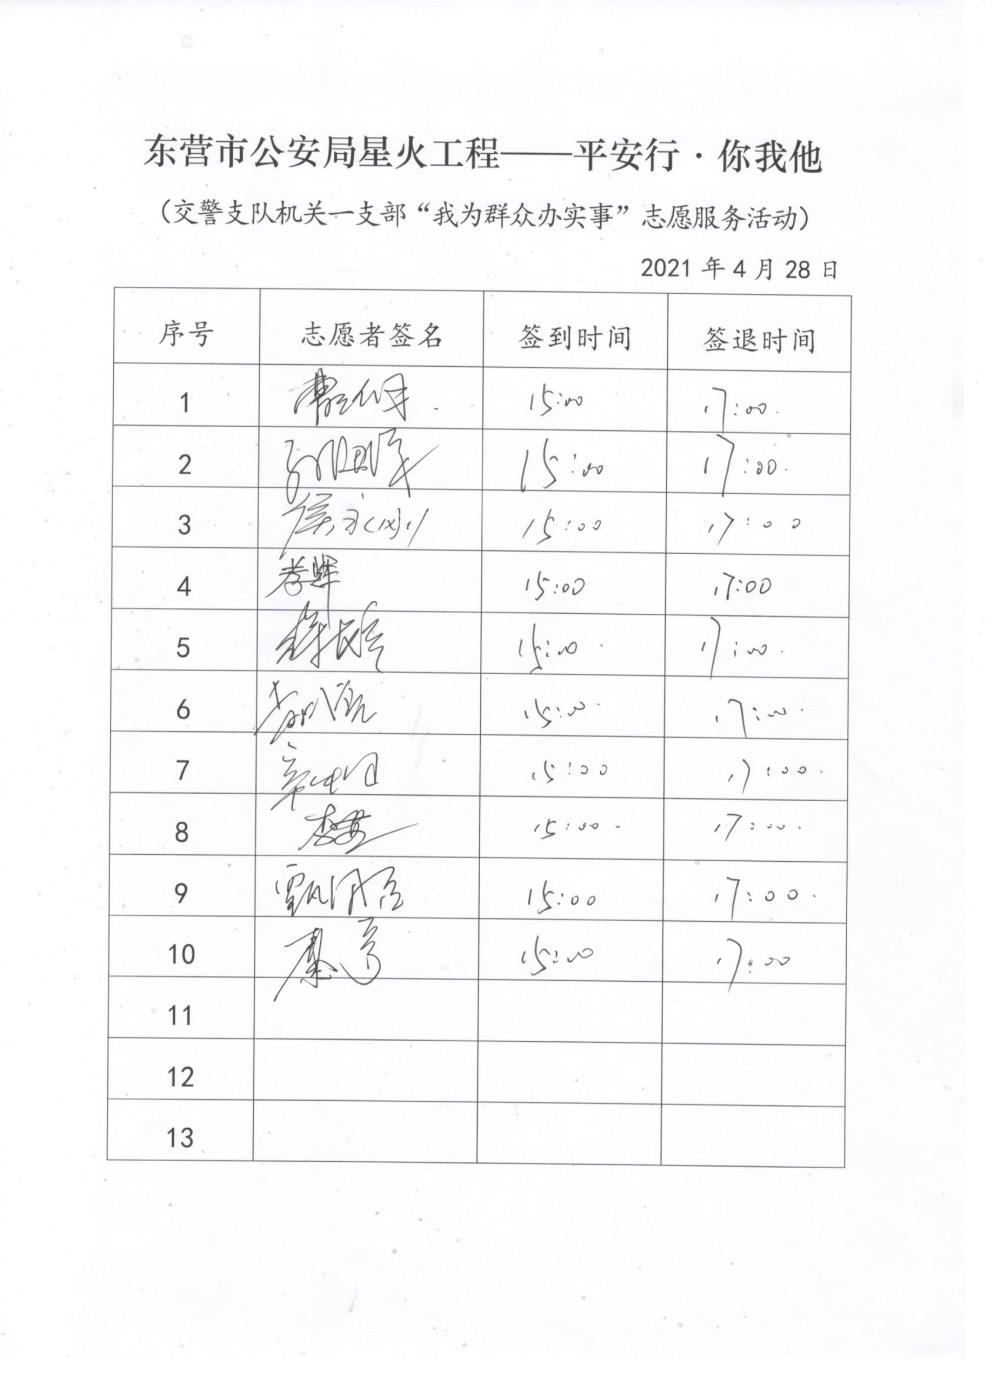 东营市公安局星火工程——平安行·你我他
（交警支队机关一支部“我为群众办实事”志愿服务活动）
2021 年 4 月 28 日
序号 志愿者签名 签到时间 签退时间
1 15:00 17:00.
2 15:00 17:00.
3 15:00 17:00
4 15:00 17:00
5 15:00 17:00
6 15:00 17:00
7 15:00 17:00
8 15:00 17:00
9 15:00 17:00
10 15:00 17:00
11
12
13